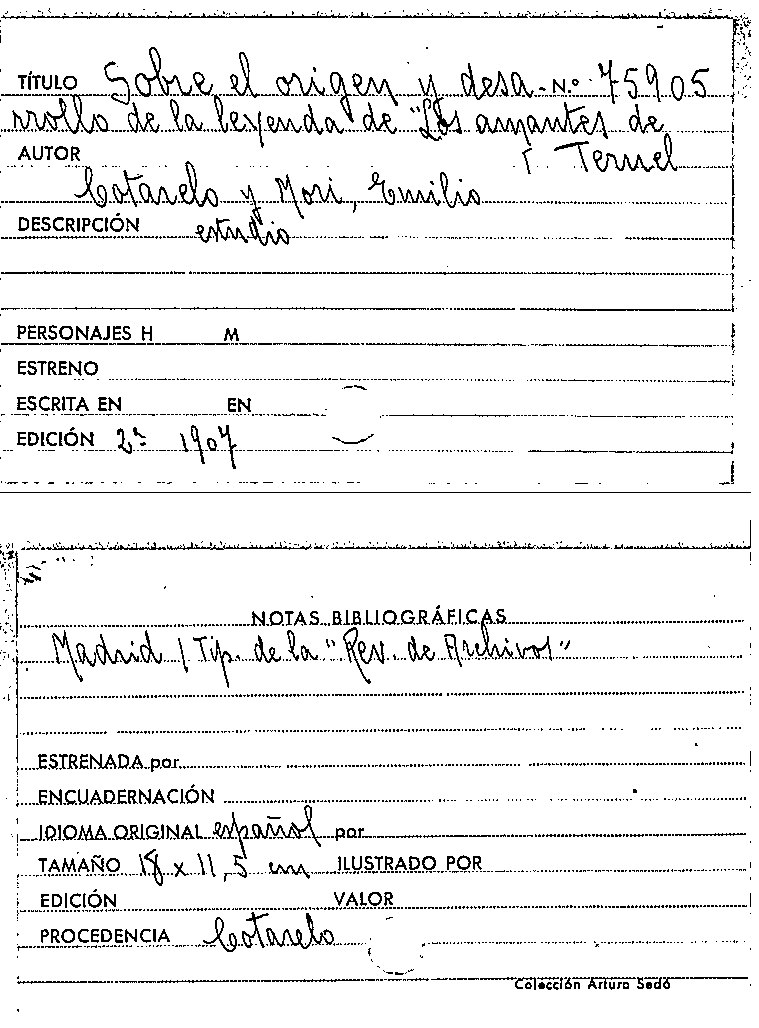 TÍTULO Sobre el origen y desa- N.º 75905
rrollo de la leyenda de "Los amantes de
Teruel
AUTOR
Cotarelo y Mori, Emilio
DESCRIPCIÓN estudio
PERSONAJES H M
ESTRENO
ESCRITA EN EN
EDICIÓN 2ª 1907
NOTAS BIBLIOGRÁFICAS
Madrid / Tip. de la "Rev. de Archivos"
ESTRENADA por
ENCUADERNACIÓN
IDIOMA ORIGINAL español por
TAMAÑO 18 x 11,5 cm ILUSTRADO POR
EDICIÓN VALOR
PROCEDENCIA Cotarelo
Colección Arturo Sedó